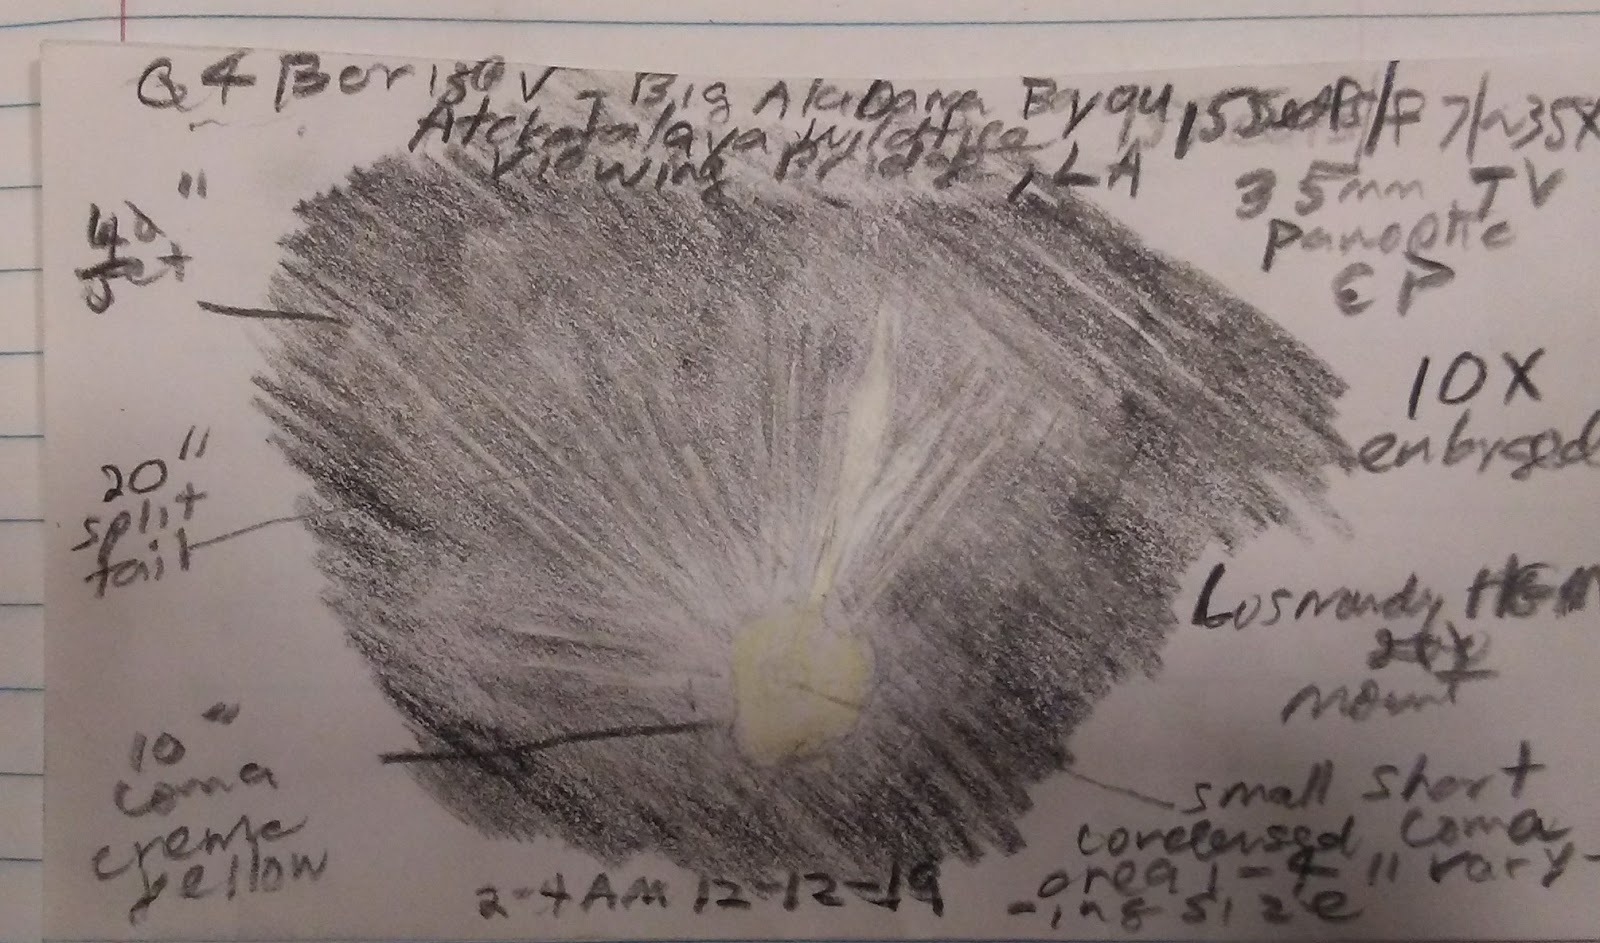 Q4 Borisov - Big Alabama Bayou, 15
Atchafalaya
Viewing Bridge, LA
/F 7/~35X
35mm TV
Panoptic
EP
"
jet
10X
enlarged
20"
split
tail
Losmandy
mount
10"
coma
creme
yellow
small short
condensed coma
area 1-4" vary-
-ing size
2-4 AM 12-12-19